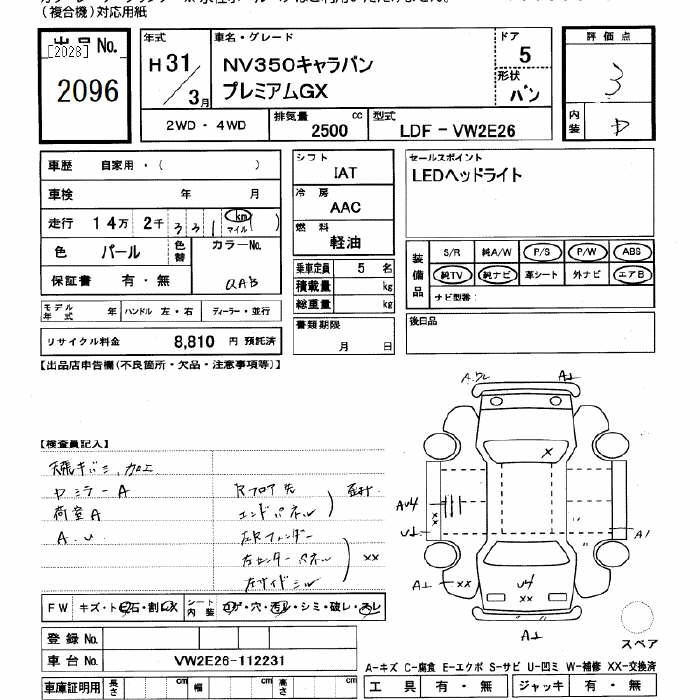 （複合機）対応用紙
出品 No.
[2028]
2096
年式
H31/3月
車名・グレード
NV350キャラバン
プレミアムGX
ドア
5
形状
バン
評価点
3
内装
D
2WD・4WD
排気量 2500 cc
型式 LDF-VW2E26
車歴 自家用・（ ）
車検 年 月
走行 14万 2千 331 （km マイル）
色 パール 色替 カラーNo.
QAB
保証書 有・無
シフト
IAT
冷房
AAC
燃料
軽油
乗車定員 5 名
積載量 kg
総重量 kg
書類期限
月 日
セールスポイント
LEDヘッドライト
装備品
S/R 純A/W P/S P/W ABS
純TV 純ナビ 革シート 外ナビ エアB
ナビ型番：
後日品
モデル年式 年 ハンドル 左・右 ディーラー・並行
リサイクル料金 8,810 円 預託済
【出品店申告欄（不良箇所・欠品・注意事項等）】
【検査員記入】
天張キバミ、加工
ミラーA
荷室A
A.U
Rフロア先
エンドパネル
左Rフェンダー
左センターパネル
左サイドシル
XX
A
AU4
XX
U1
A1
A1
XX
U4
XX
A1
FW キズ・ト石・割・X
シート内装 コゲ・穴・汚レ・シミ・破レ・スレ
登録 No.
車台 No. VW2E26-112231
車庫証明用 長さ cm 幅 cm 高さ cm
スペア
A-キズ C-腐食 E-エクボ S-サビ U-凹ミ W-補修 XX-交換済
工具 有・無 ジャッキ 有・無